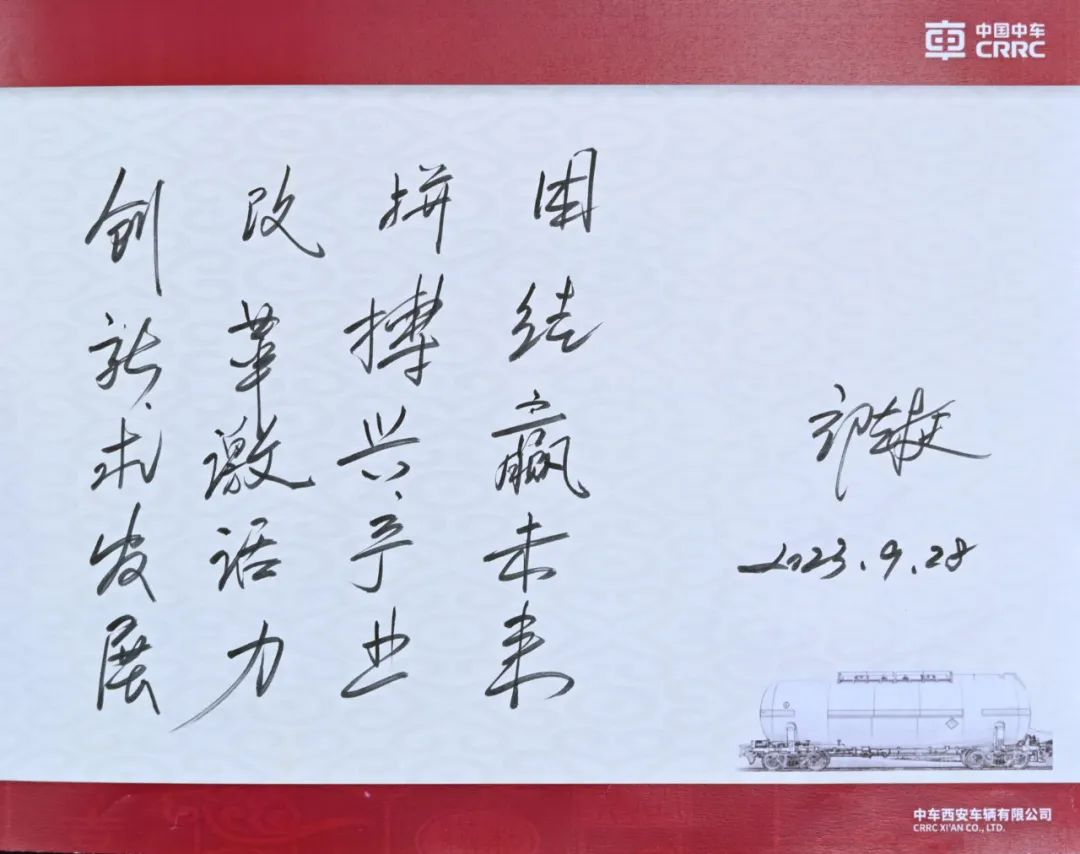 中国中车
CRRC
创新求发展
改革激活力
拼搏兴产业
团结赢未来
2023.9.28
中车西安车辆有限公司
CRRC XI'AN CO., LTD.